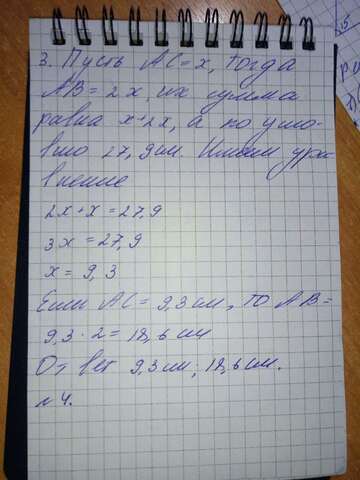 3. Пусть AC = x, тогда
AB = 2x, их сумма
равна x+2x, а по усло-
вию 27,9 см. Имеем урав
внение
2x+x = 27,9
3x = 27,9
x = 9,3
Если AC = 9,3 см, то AB =
9,3 · 2 = 18,6 см
Ответ 9,3 см; 18,6 см.
№ 4.